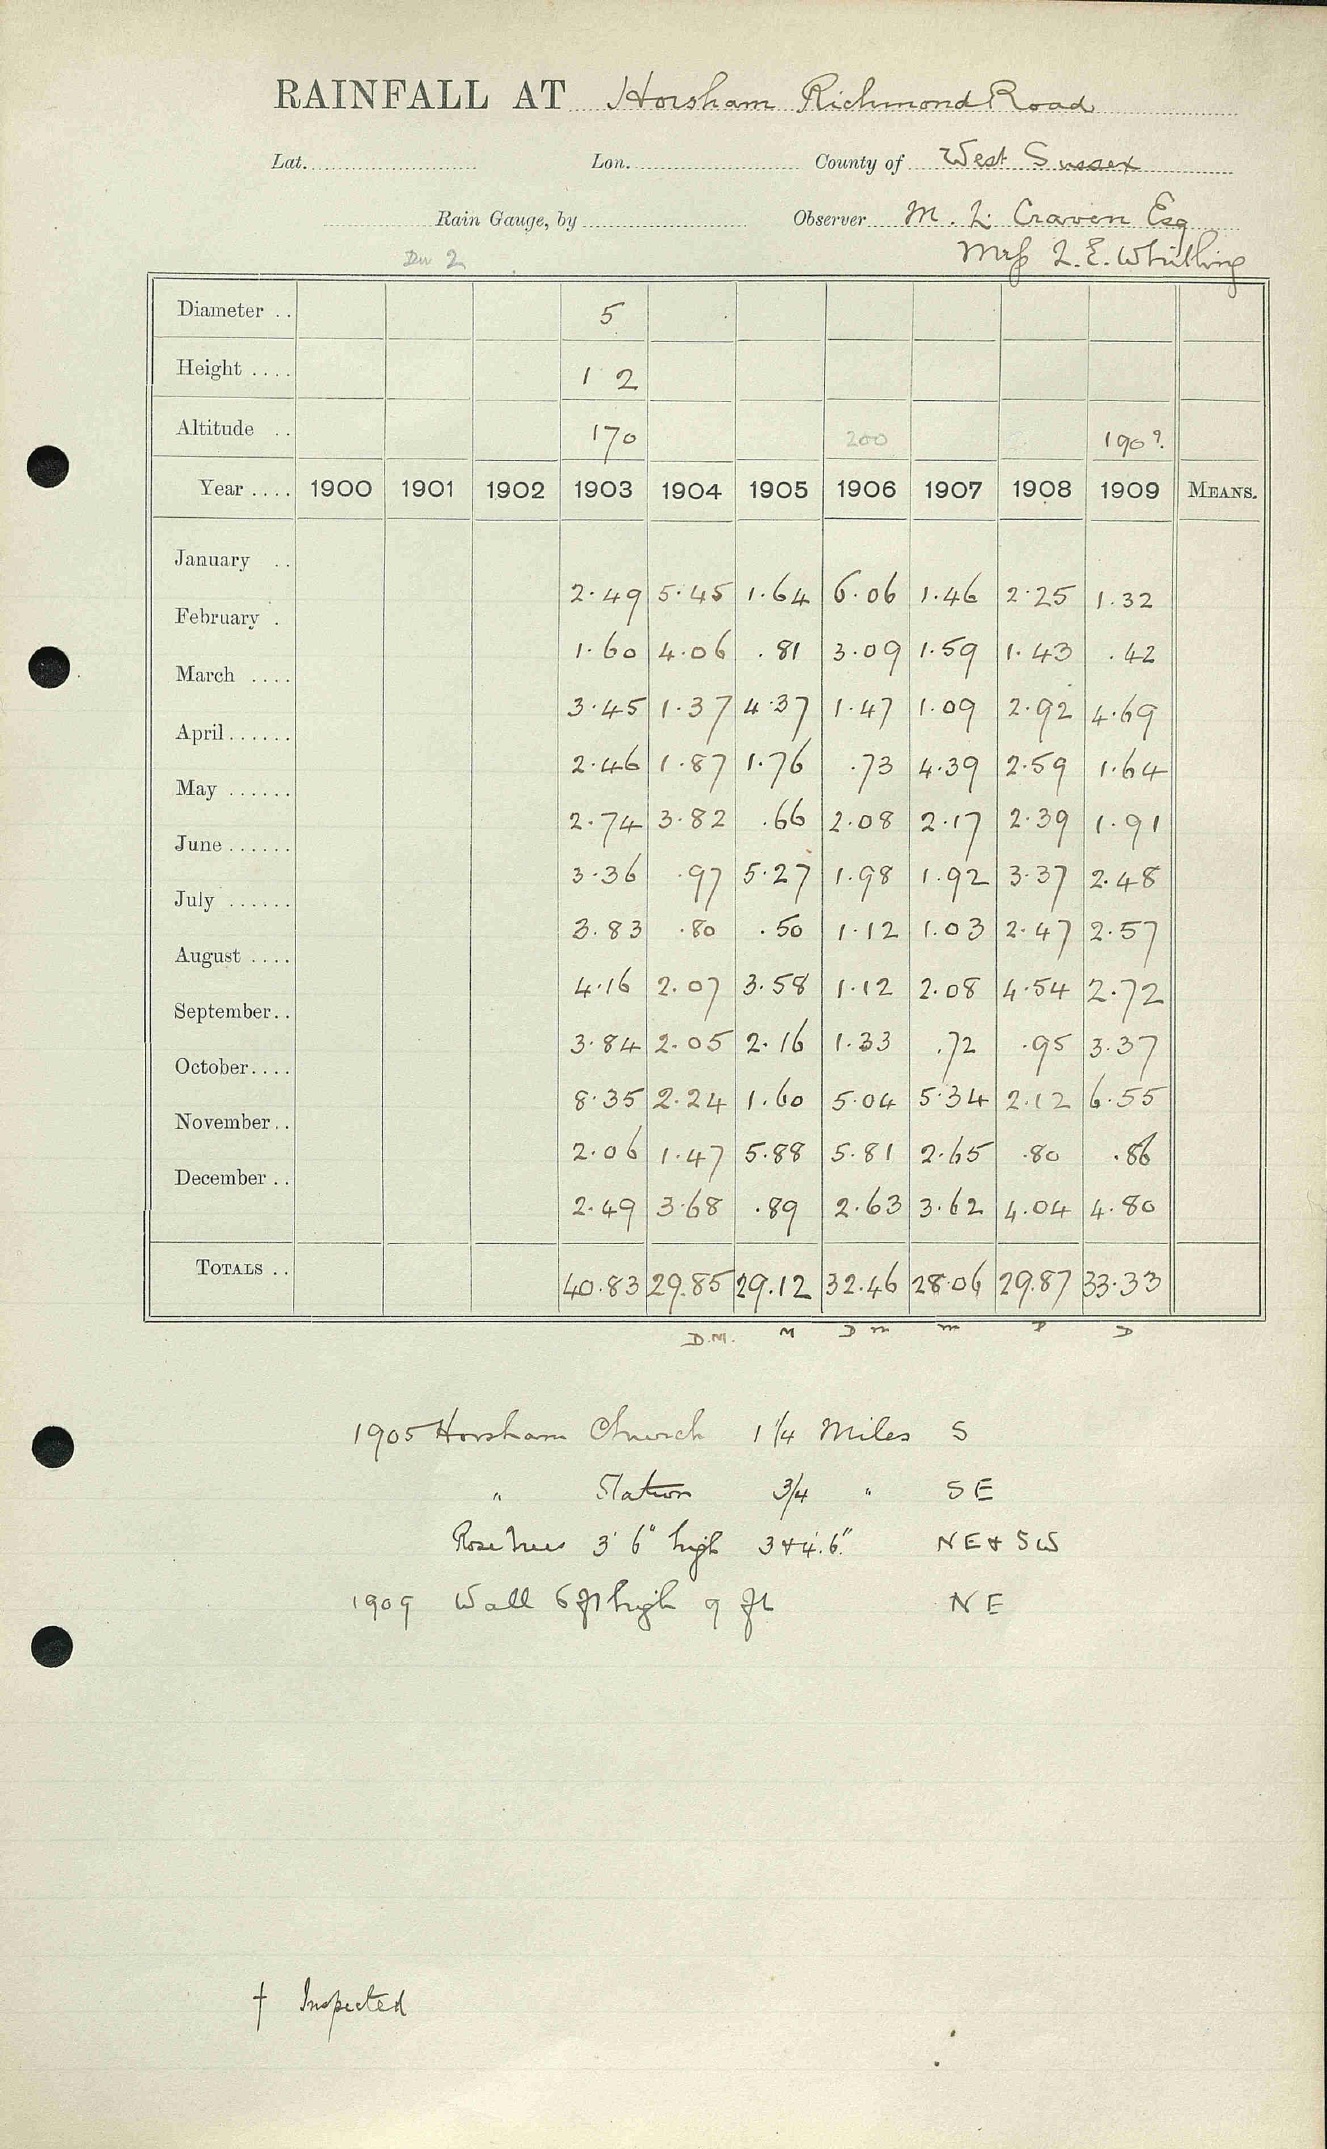 RAINFALL AT Horsham Richmond Road
Lat. Lon. County of West Sussex
Rain Gauge, by Observer M. L. Craven Esq
Mrs L. E. Whitling
Dev 2
Diameter .. 5
Height .... 1 2
Altitude .. 170 200 190?
Year .... 1900 1901 1902 1903 1904 1905 1906 1907 1908 1909 MEANS.
January .. 2.49 5.45 1.64 6.06 1.46 2.25 1.32
February . 1.60 4.06 .81 3.09 1.59 1.43 .42
March .... 3.45 1.37 4.37 1.47 1.09 2.92 4.69
April ...... 2.46 1.87 1.76 .73 4.39 2.59 1.64
May ...... 2.74 3.82 .66 2.08 2.17 2.39 1.91
June ...... 3.36 .97 5.27 1.98 1.92 3.37 2.48
July ...... 3.83 .80 .50 1.12 1.03 2.47 2.57
August .... 4.16 2.07 3.58 1.12 2.08 4.54 2.72
September .. 3.84 2.05 2.16 1.33 .72 .95 3.37
October .... 8.35 2.24 1.60 5.04 5.34 2.12 6.55
November .. 2.06 1.47 5.88 5.81 2.65 .80 .86
December .. 2.49 3.68 .89 2.63 3.62 4.04 4.80
TOTALS .. 40.83 29.85 29.12 32.46 28.06 29.87 33.33
D.M. M D m m D D
1905 Horsham Church 1 1/4 Miles S
" Station 3/4 " SE
Rose trees 3' 6" high 3 & 4'.6" NE & SW
1909 Wall 6 ft high 9 ft NE
† Inspected